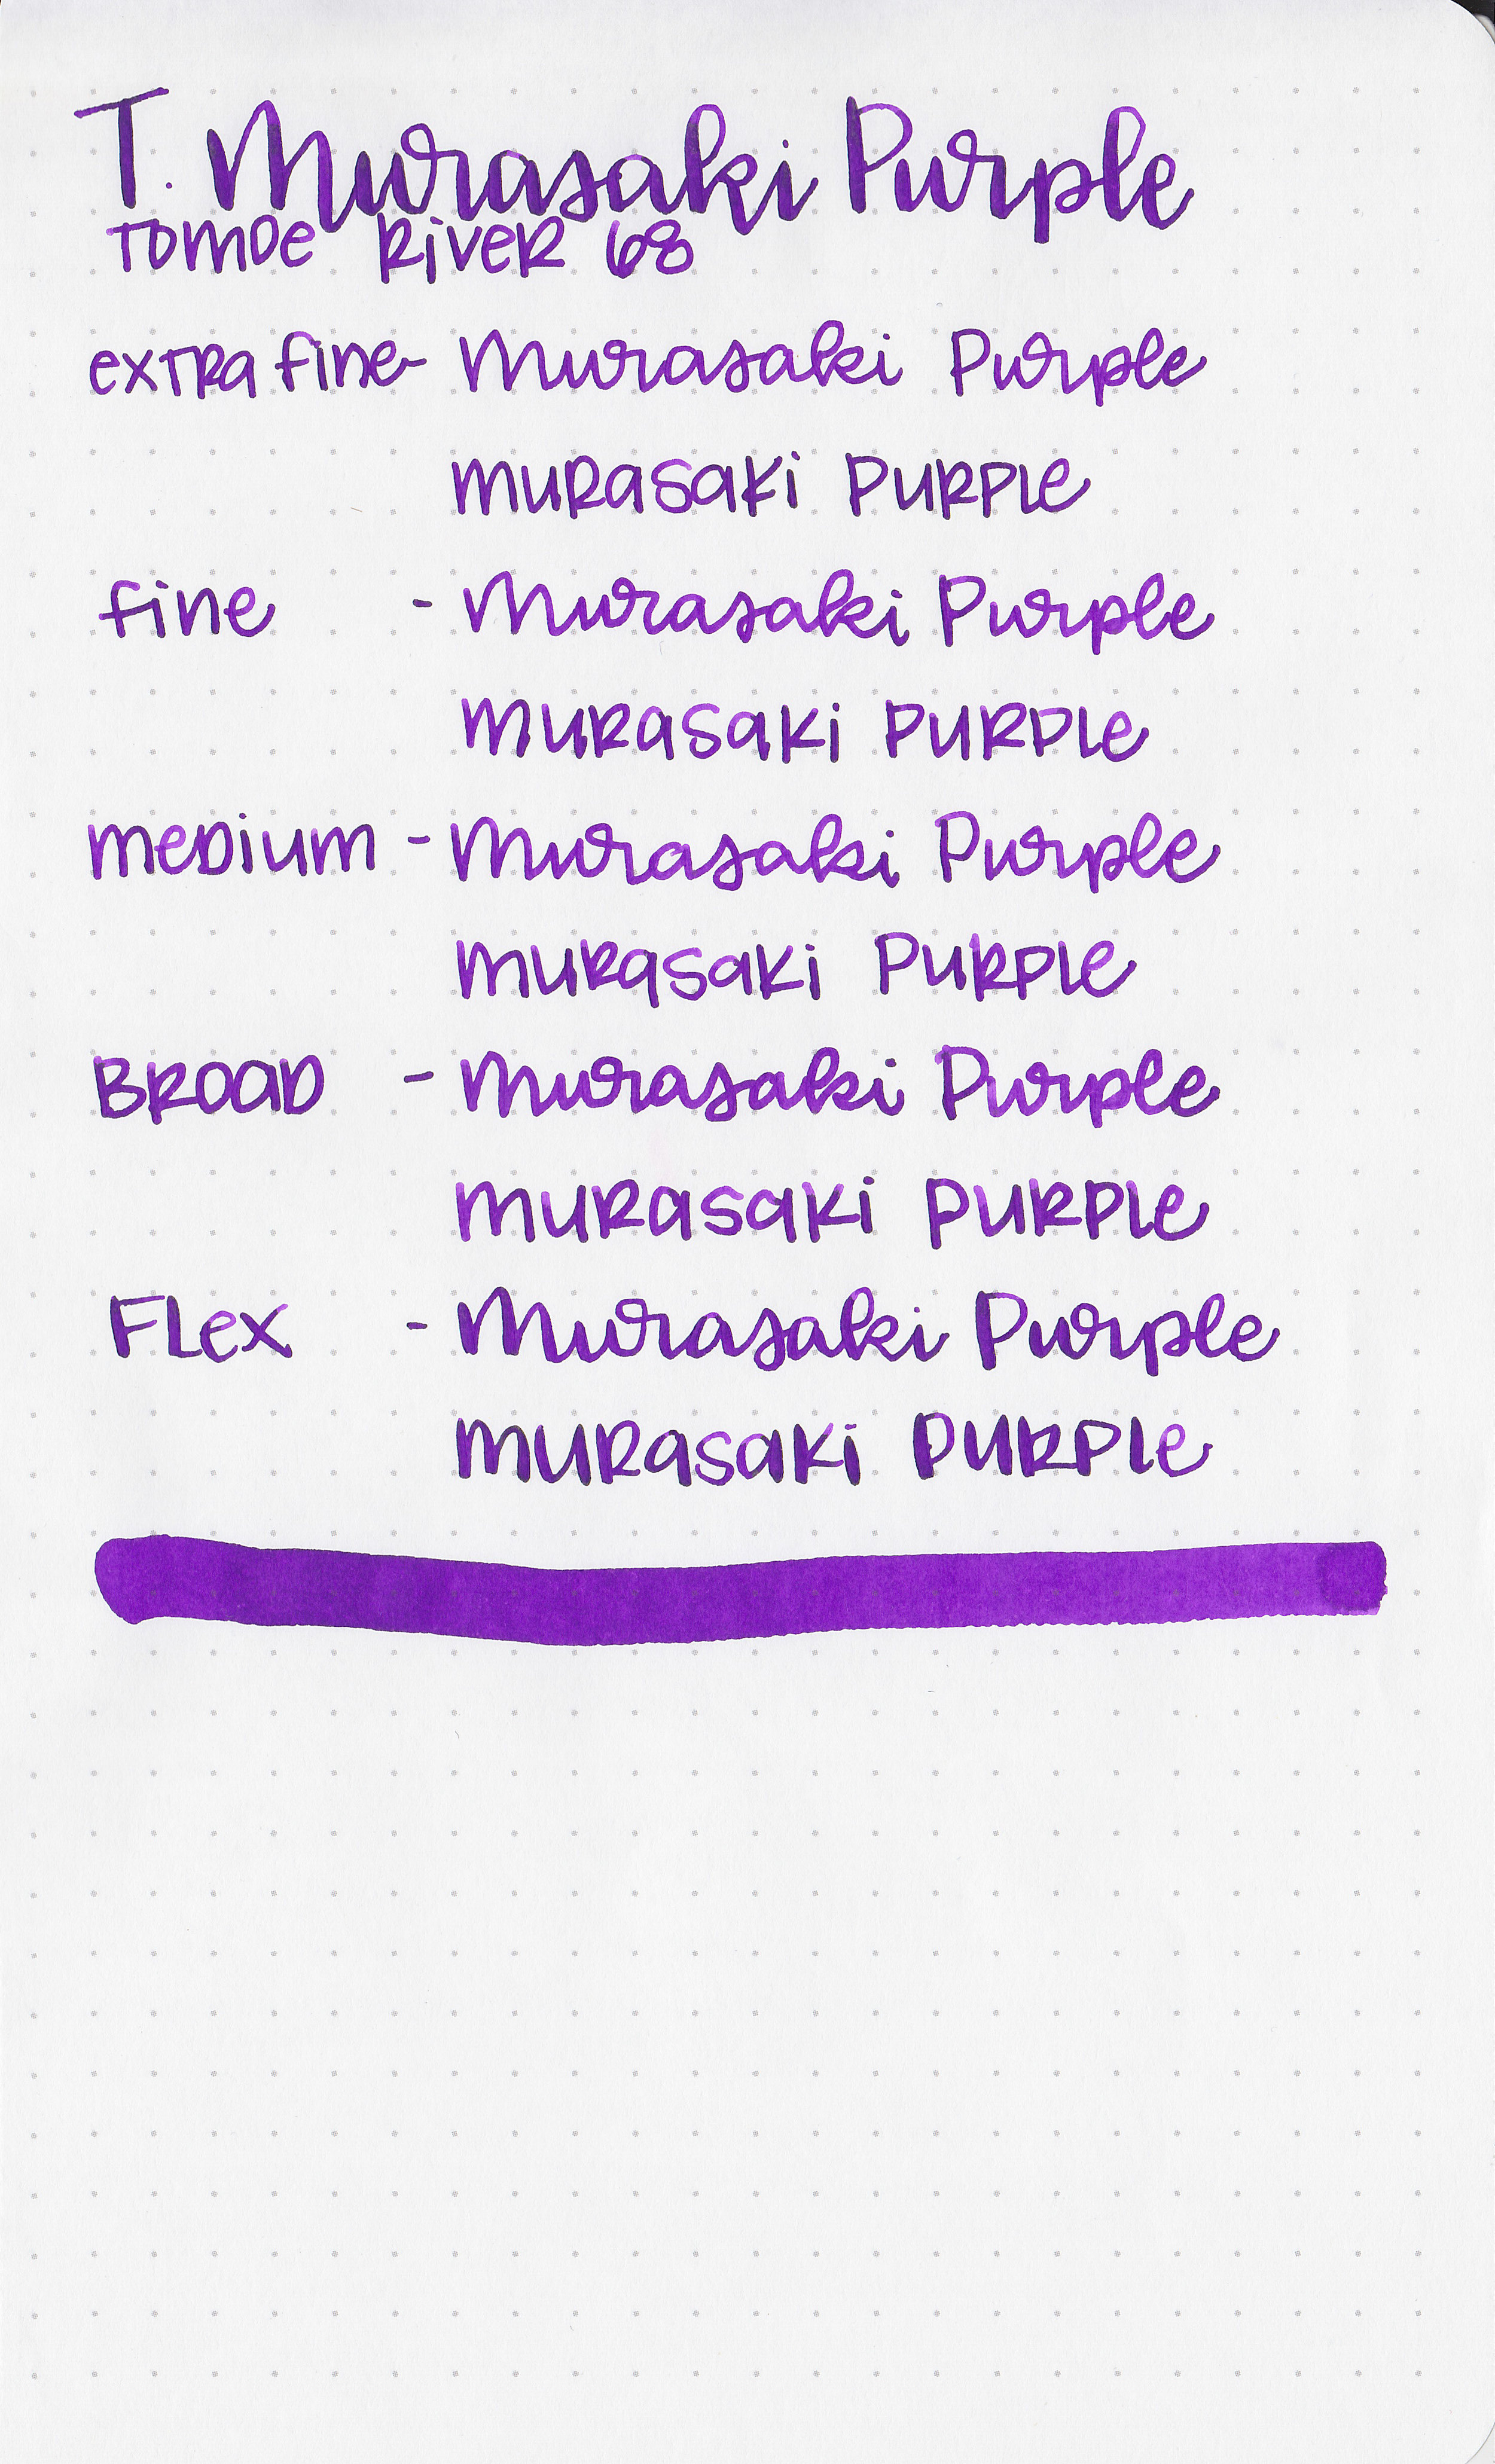 T. Murasaki Purple
TOMOe RiveR 68
exTRa fine- Murasaki Purple
MURaSaKi PURPle
fine - Murasaki Purple
MURaSaKi PURPle
meDium - Murasaki Purple
MURaSaKi PURPle
BROaD - Murasaki Purple
MURaSaKi PURPle
FLex - Murasaki Purple
MURaSaKi PURPle